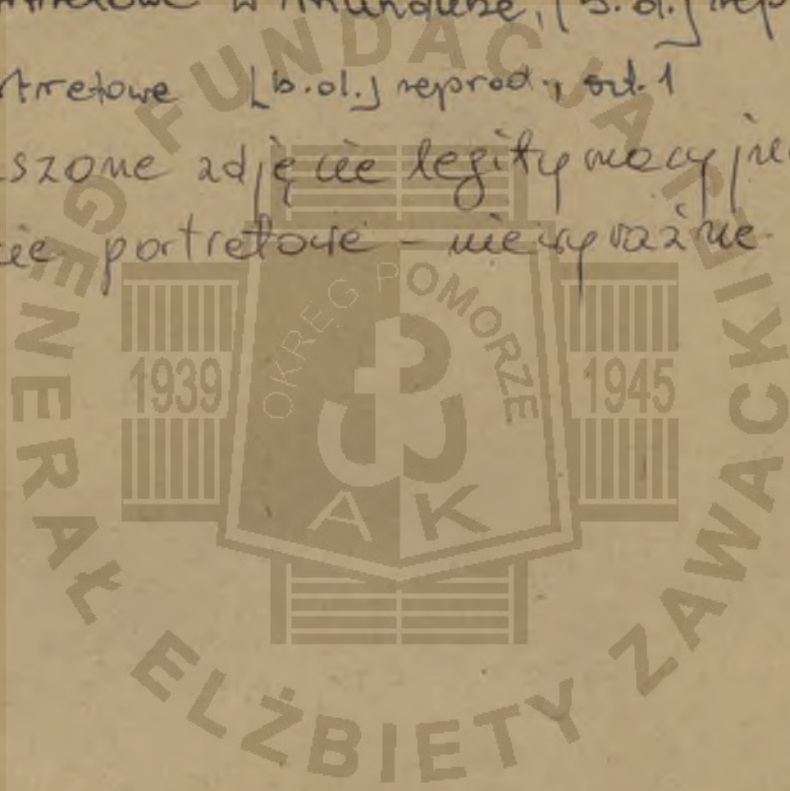 w mundurze, [b.d.] rep
[b.d.] reprod., szt. 1
zdjęcie legitymacyjne
portretowe - niewyraźne
FUNDACJA GENERAŁ ELŻBIETY ZAWACKIE
OKRĘG POMORZE
1939
1945
A K